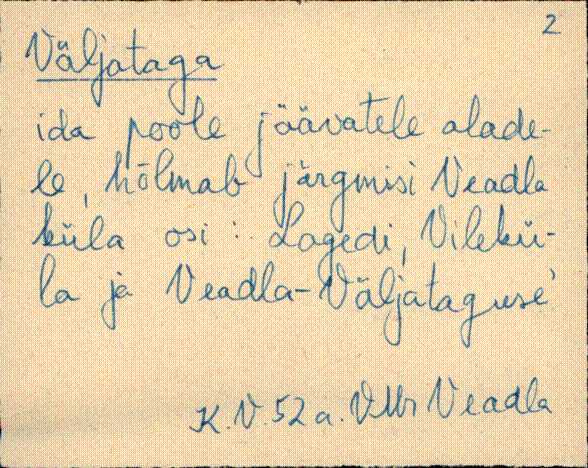 2
Väljataga
ida poole jäävatele alade-
le, hõlmab järgmisi Veadla
küla osi : Lagedi, Vilekü-
la ja Veadla-Väljataguse'
K.V. 52 a. VMr Veadla